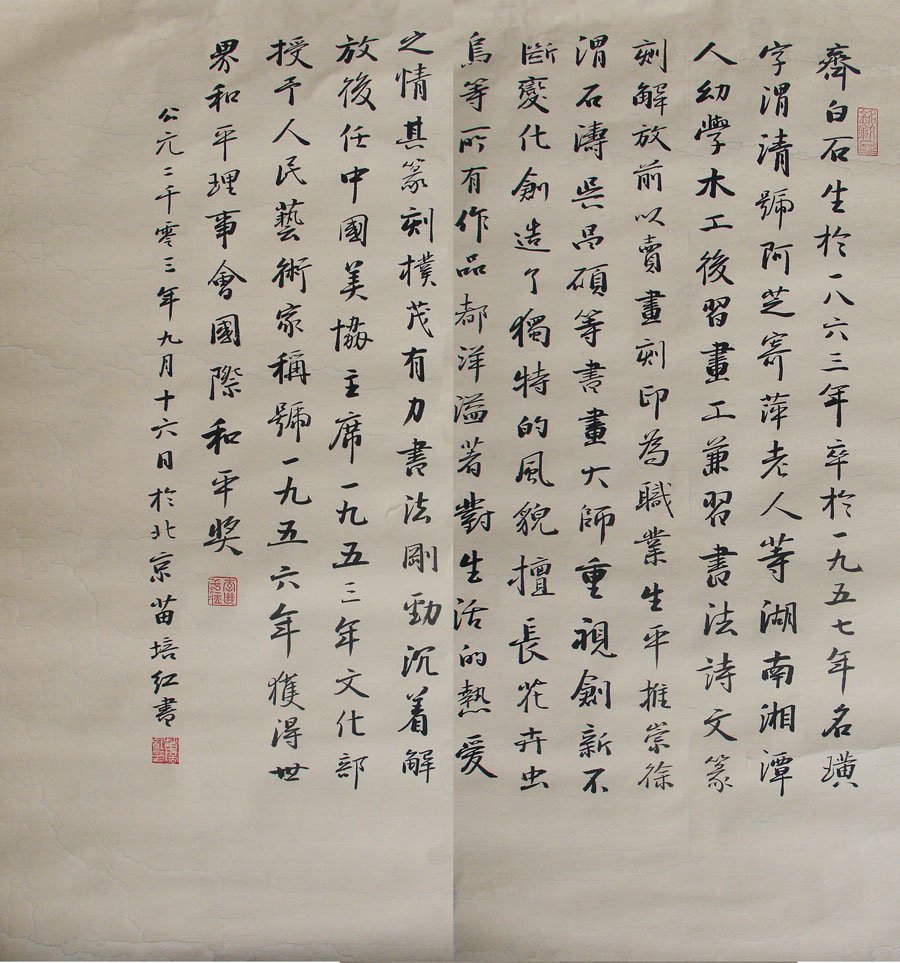 齊白石生於一八六三年卒於一九五七年名璜
字渭清號阿芝寄萍老人等湖南湘潭
人幼學木工後習畫工兼習書法詩文篆
刻解放前以賣畫刻印為職業生平推崇徐
渭石濤吳昌碩等書畫大師重視創新不
斷變化創造了獨特的風貌擅長花卉虫
鳥等所有作品都洋溢著對生活的熱愛
之情其篆刻樸茂有力書法剛勁沉着解
放後任中國美協主席一九五三年文化部
授予人民藝術家稱號一九五六年獲得世
界和平理事會國際和平奖
公元二千零三年九月十六日於北京苗培红書